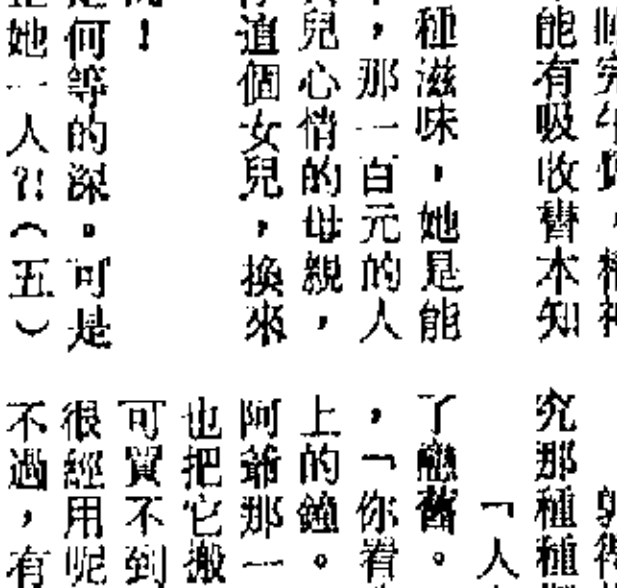 能有吸收書本知
種滋味，她是能
，那一百元的人
兒心情的母親，
這個女兒，換來
！
何等的深。可是
她一人?!（五）
究那種種
「人
了戀舊。
，「你看
上的鐘。
阿爺那一
也把它搬
可買不到
很經用呢
不過，有